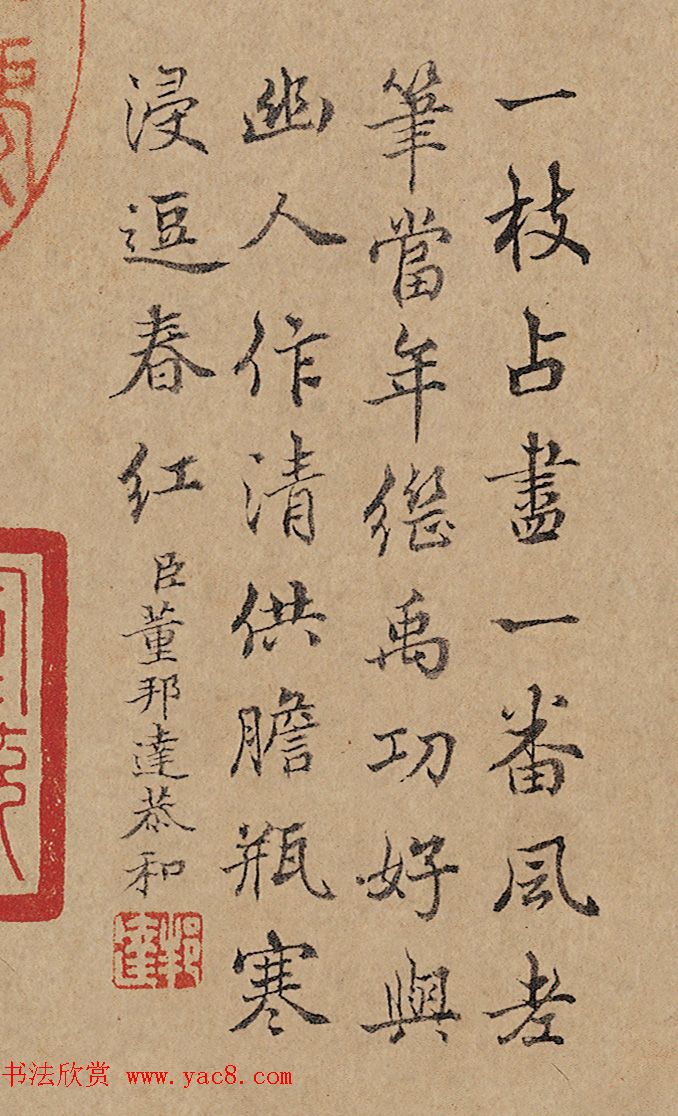 一枝占盡一番風老
筆當年繼禹功好與
幽人作清供膽瓶寒
浸逗春紅 臣董邦達恭和
邦達
书法欣赏 www.yac8.com